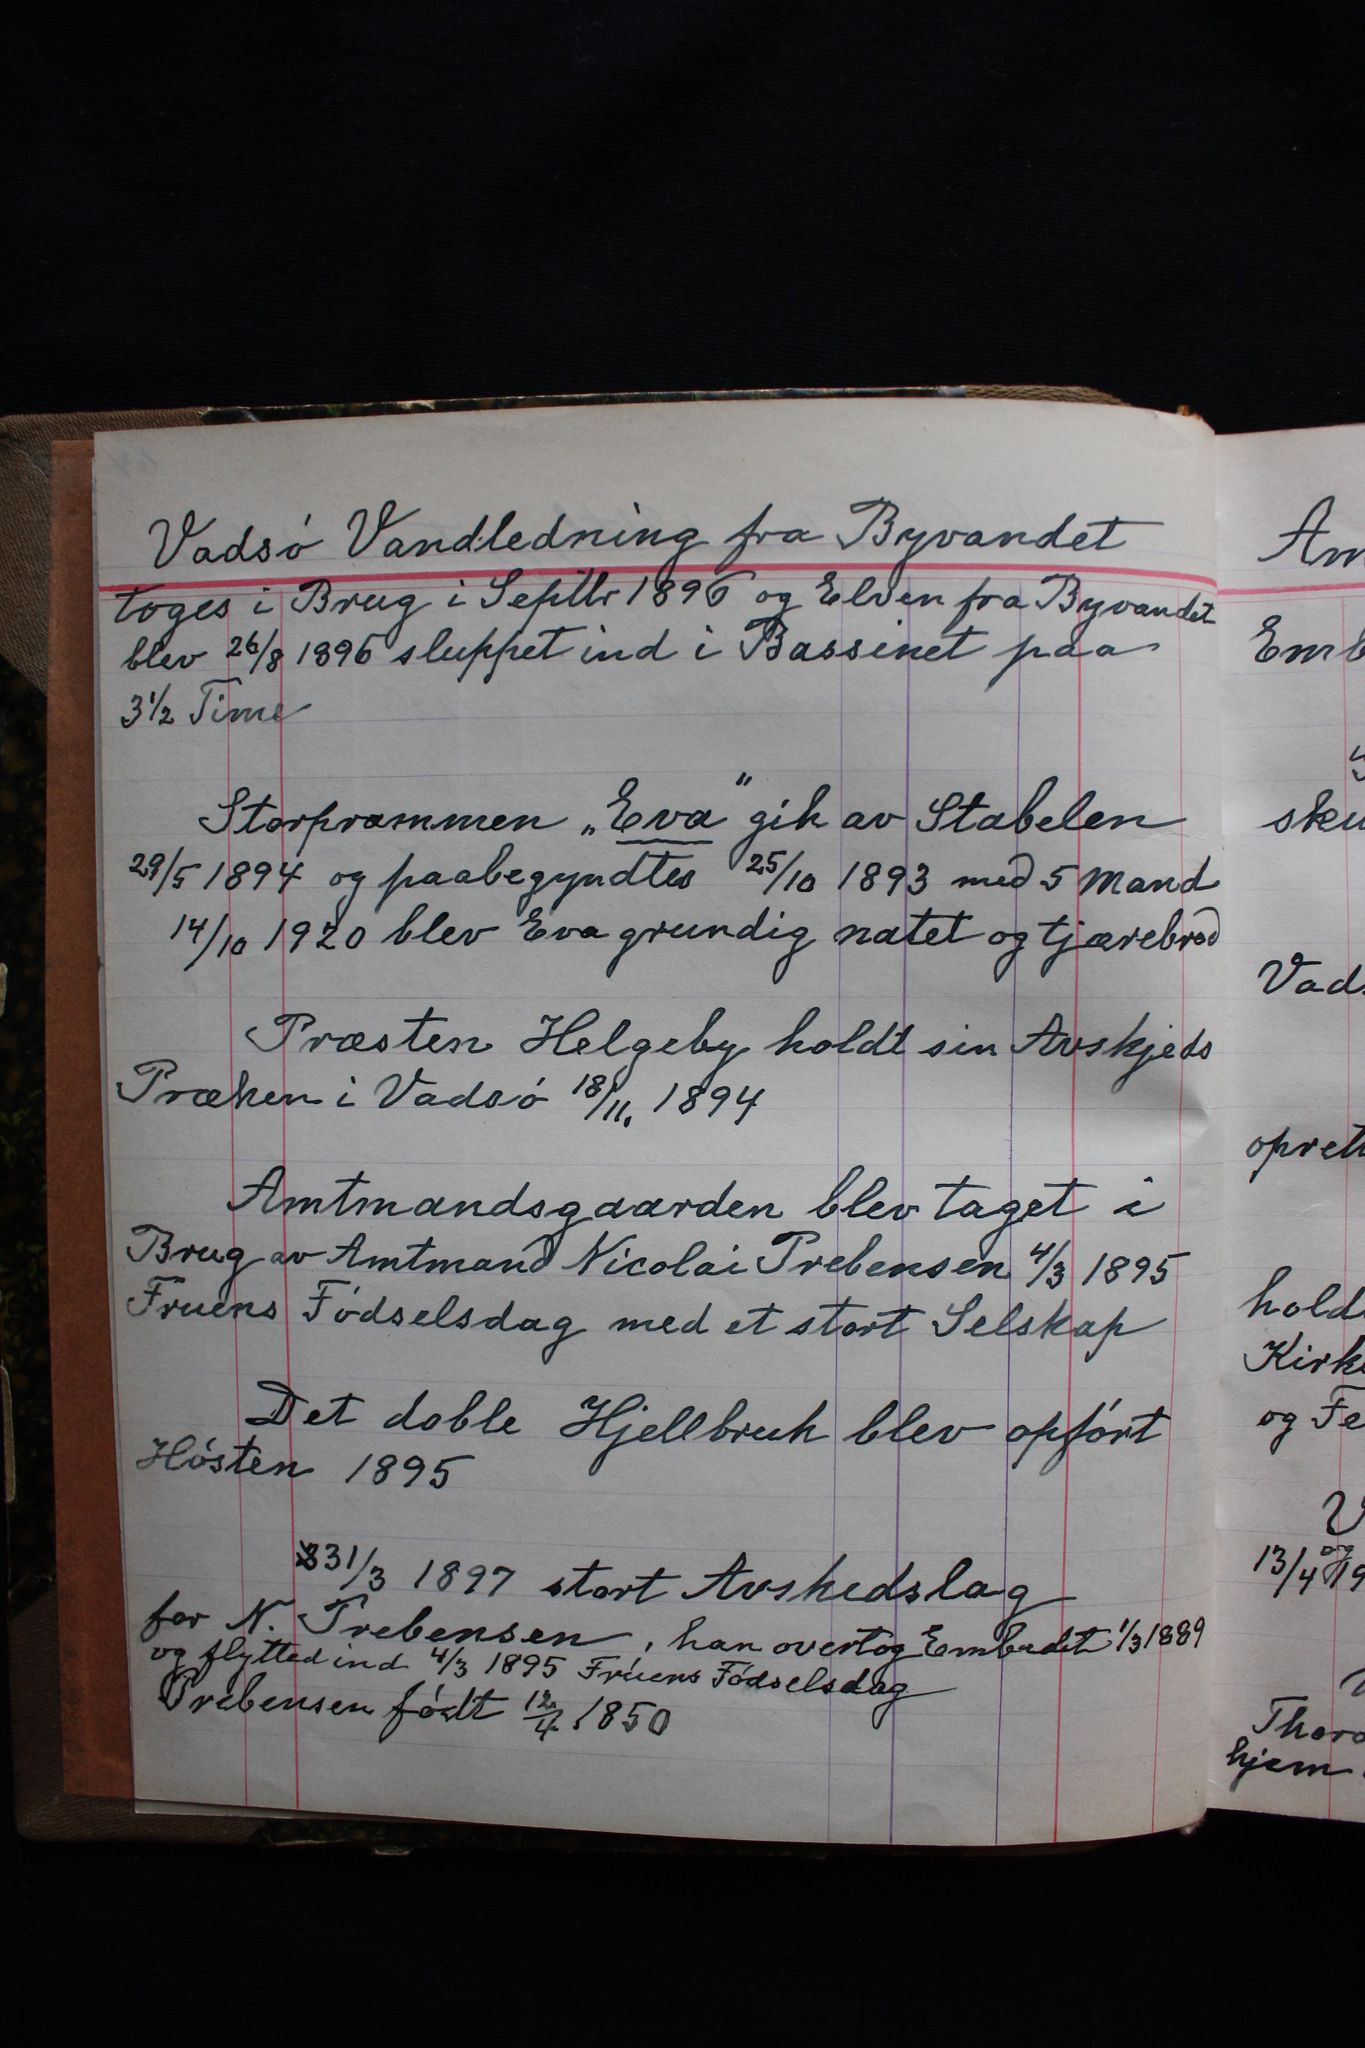 Vadsó Vandledning fra Byvandet
toges i Brug i Septbr 1896 og Elven fra Byvandet
blev 26/8 1896 sluppet ind i Bassinet paa
3 1/2 Time
Storprammen „Eva" gik av Stabelen
29/5 1894 og paabegyndtes 25/10 1893 med 5 Mand
14/10 1920 blev Eva grundig natet og tjærebrød
Præsten Helgeby holdt sin Avskjeds
Præken i Vadsó 18/11. 1894
Amtmandsgaarden blev taget i
Brug av Amtmand Nicolai Prebensen 4/3 1895
Fruens Fódselsdag med et stort Selskap
Det doble Hjellbruk blev opfórt
Hósten 1895
31/3 1897 stort Avskedslag
for N. Prebensen, han overtog Embedet 1/3 1889
og flytted ind 4/3 1895 Fruens Fódselsdag
Prebensen fódt 12/4 1850
Am
Emb
sku
Vads
opret
hold
Kirke
og Fe
V
13/4 og 19
Thor
hjem